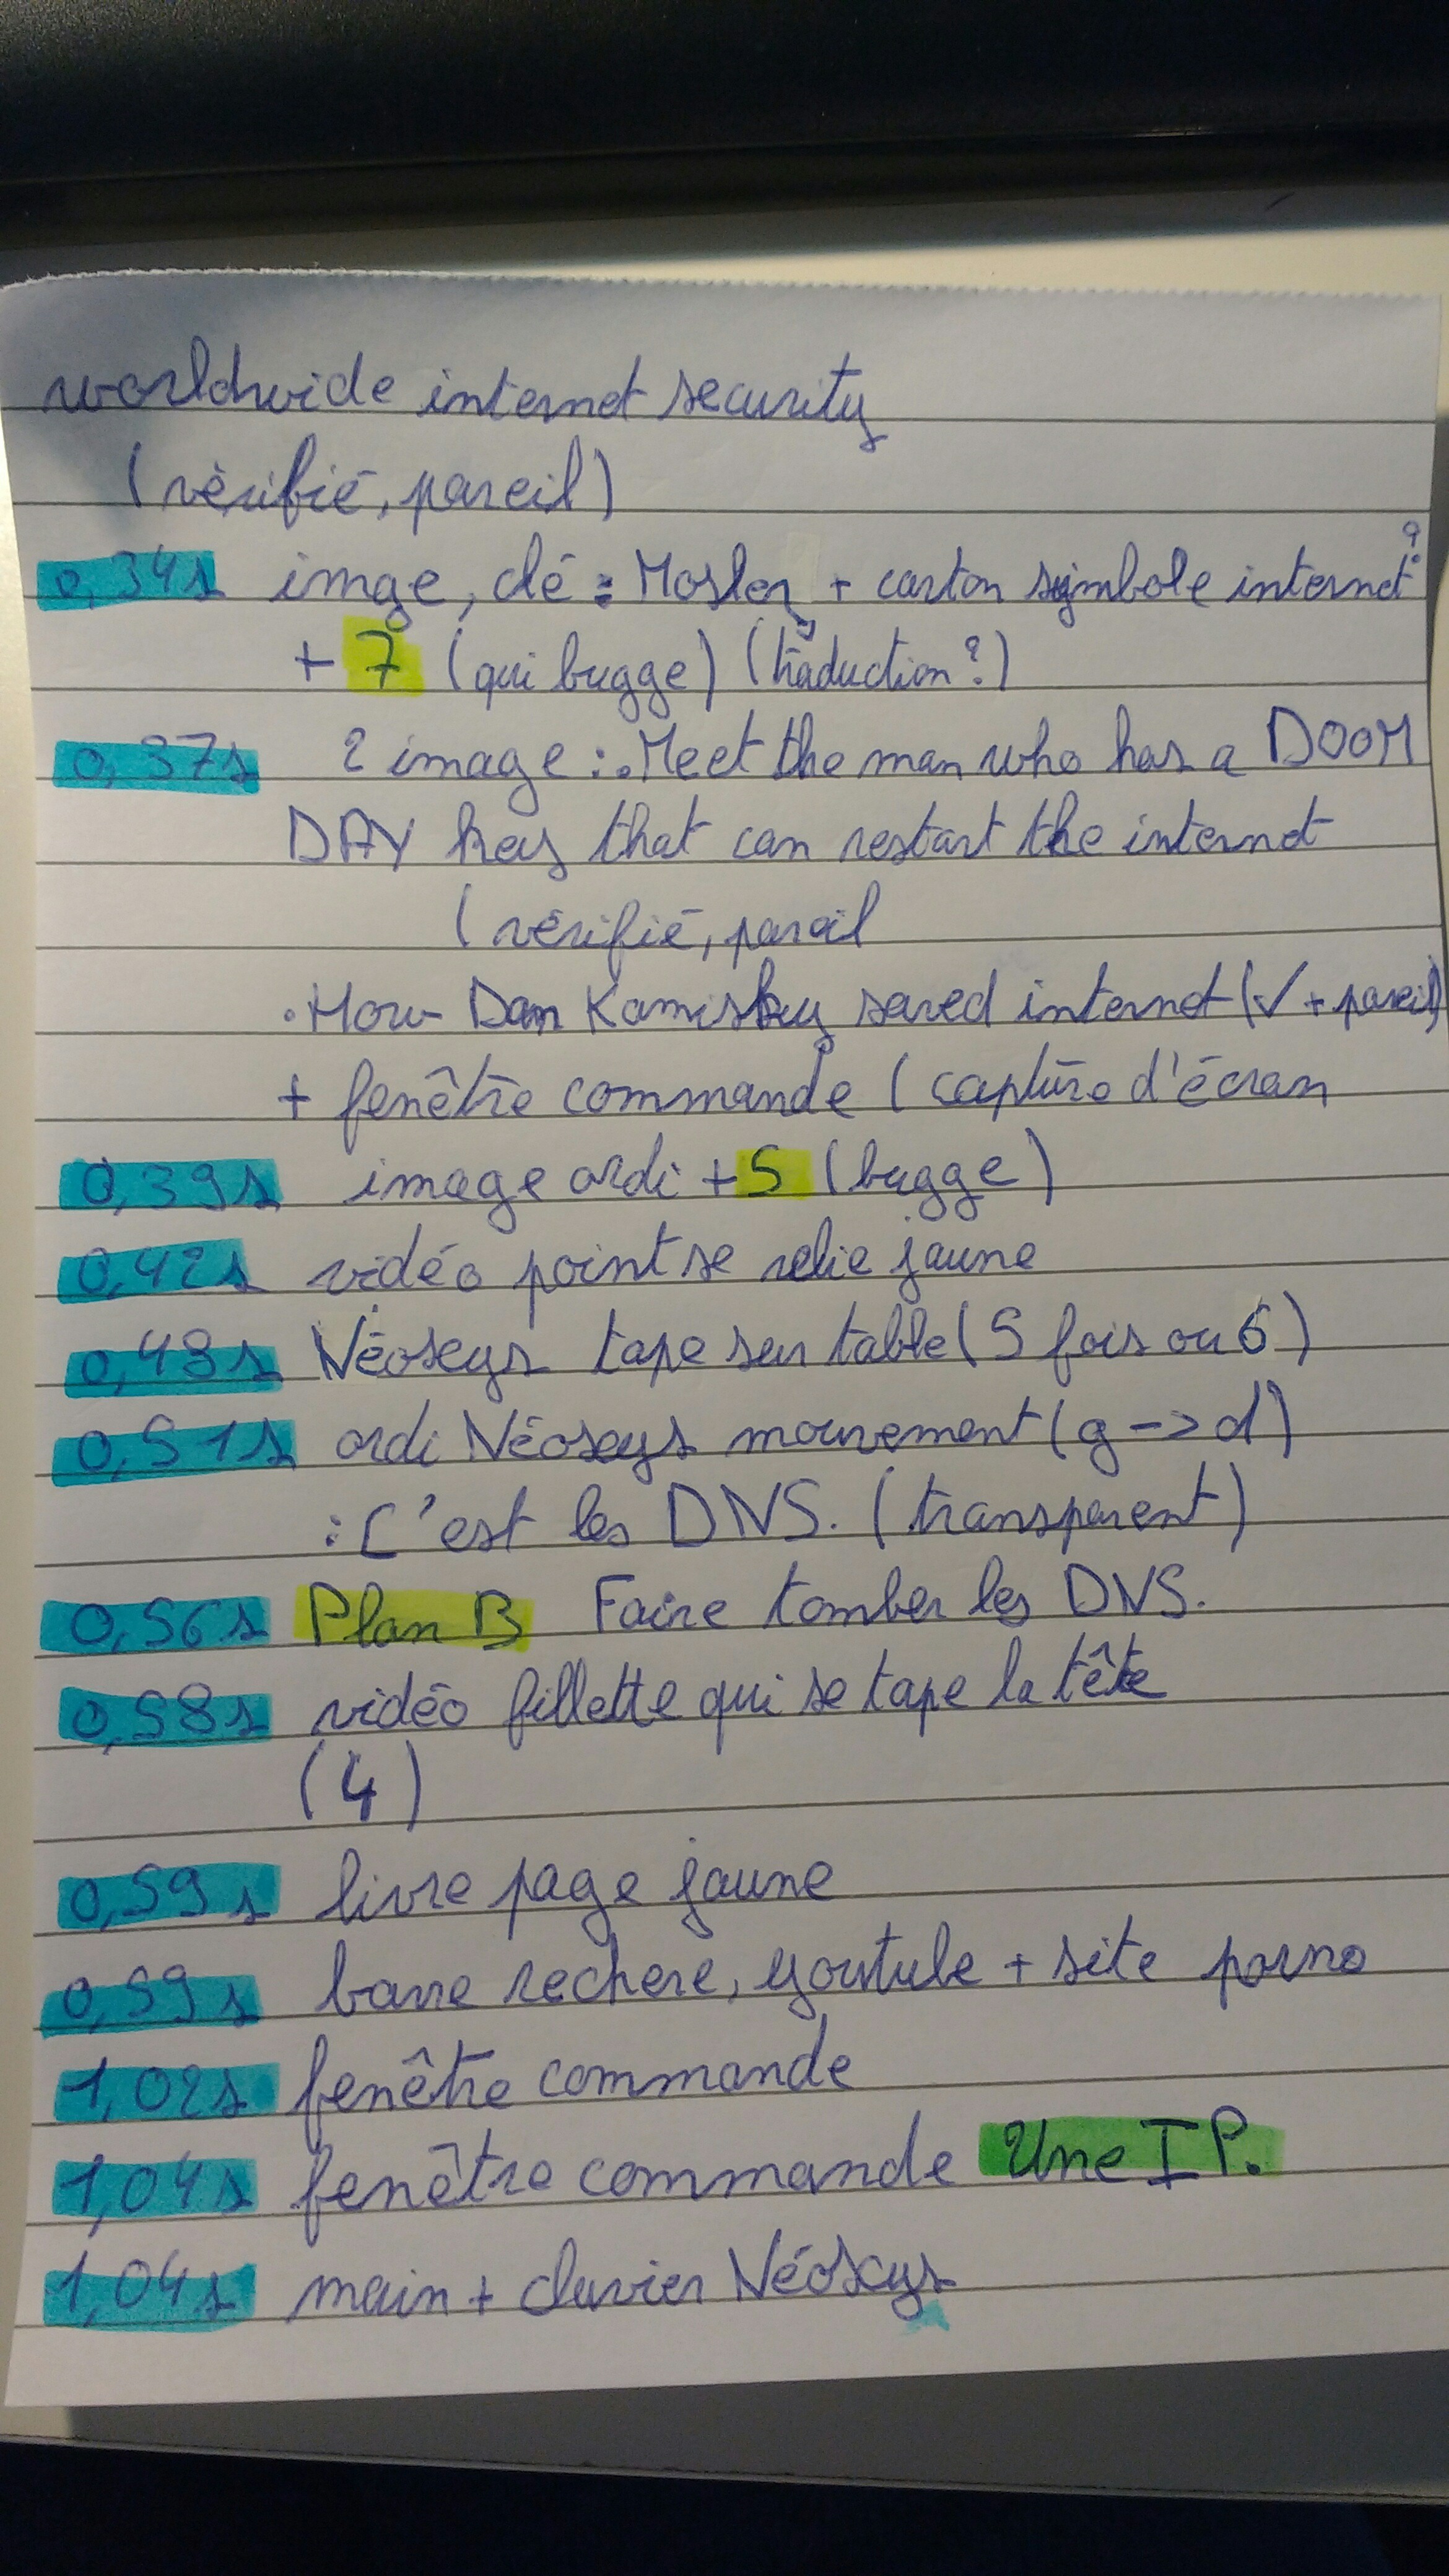 worldwide internet security
(vérifié, pareil)
0,34s image, clé : Mosler + carton symbole internet ?
+ 7 (qui bugge) (traduction ?)
0,37s 2 image : . Meet the man who has a DOOM
DAY key that can restart the internet
(vérifié, pareil
. How Dan Kaminsky saved internet (√ + pareil)
+ fenêtre commande (capture d'écran
0,39s image ordi + 5 (bugge)
0,42s vidéo point se relie jaune
0,48s Néoxys tape sur table (5 fois ou 6)
0,51s ordi Néoxys mouvement (g -> d)
: C'est les DNS. (transparent)
0,56s Plan B Faire tomber les DNS.
0,58s vidéo fillette qui se tape la tête
(4)
0,59s livre page jaune
0,59s barre rechere, youtube + site porno
1,02s fenêtre commande
1,04s fenêtre commande Une IP.
1,04s main + clavier Néoxys